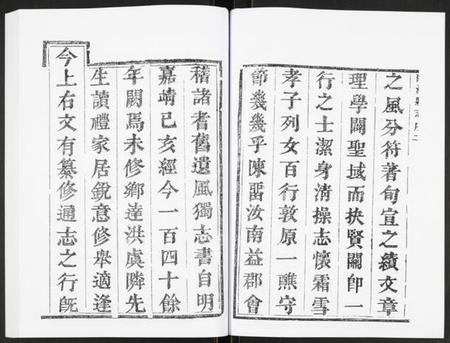 之風分符著旬宣之績文章
理學闢聖域而抉賢關卽一
行之士潔身淸操志懷霜雪
孝子列女百行敦原一醮守
節幾幾乎陳畱汝南益郡會
稽諸耆舊遺風獨志書自明
嘉靖己亥經今一百四十餘
年闕焉未修鄉達洪虞隣先
生讀禮家居銳意修舉適逢
今上右文有纂修通志之行旣